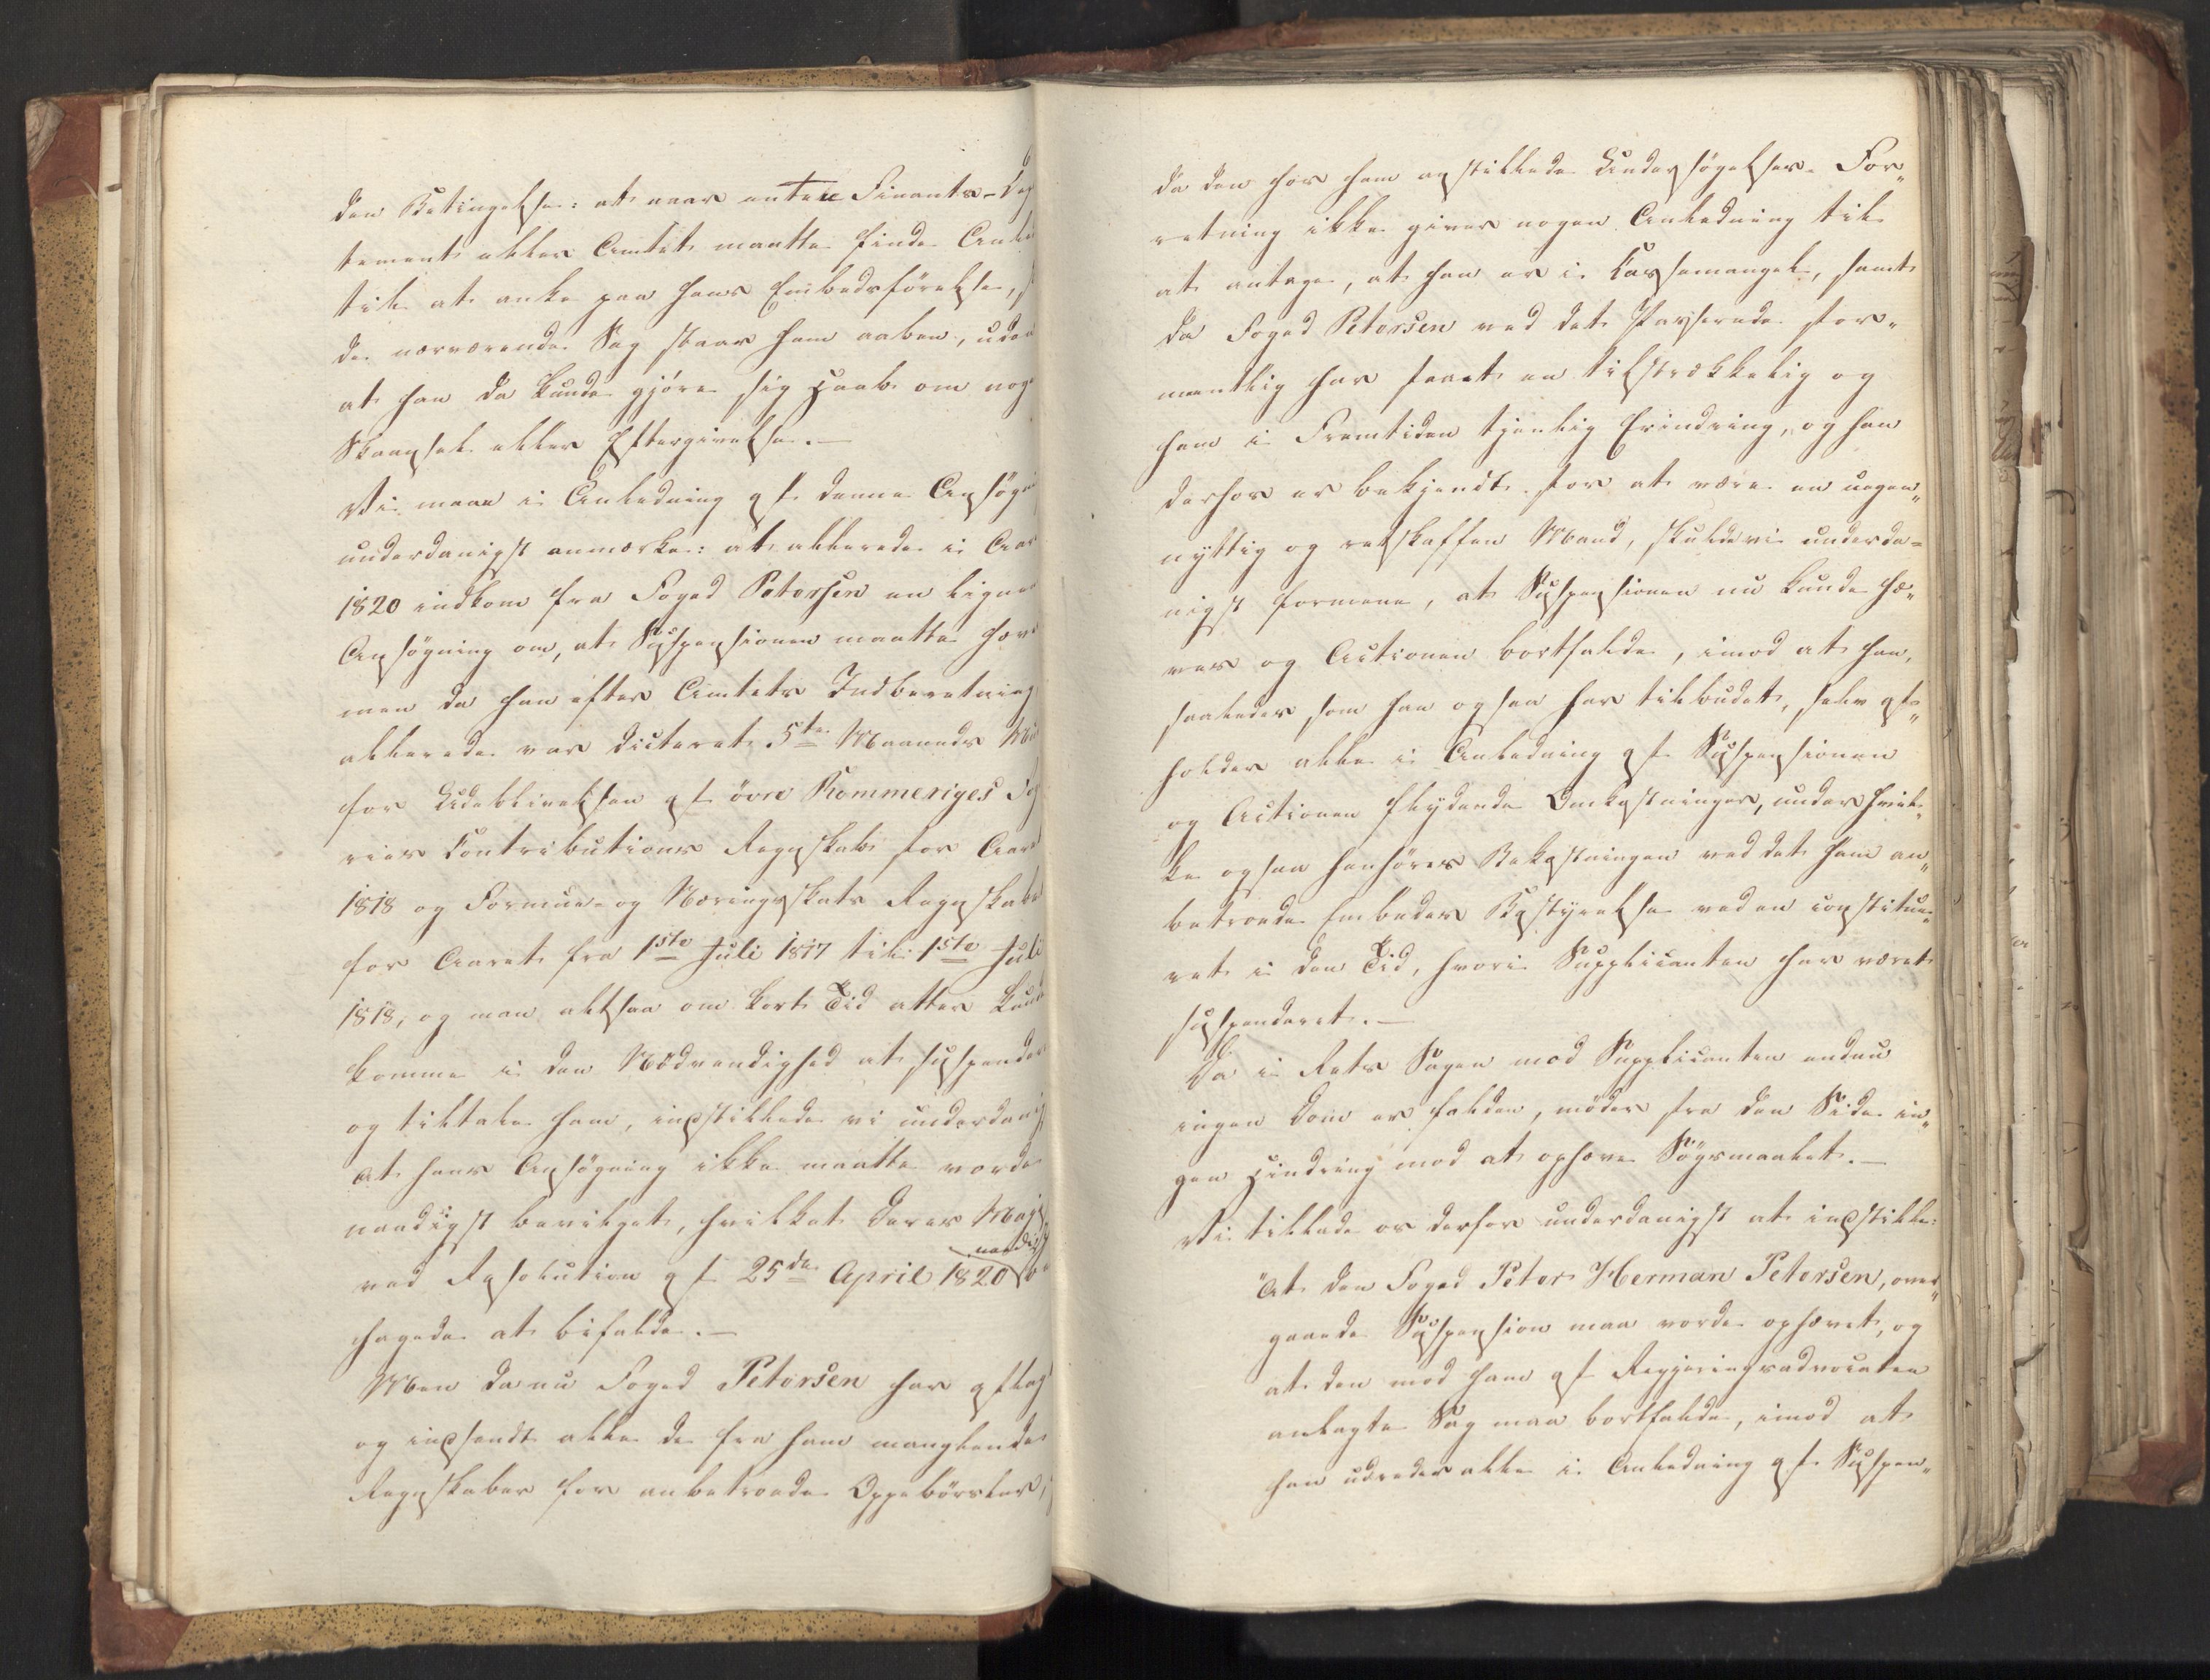 den Betingelse: at naar enten Finants-Dep
tement eller Amtet maatte finde Anled
til at anke paa hans Embedsførelse,
de nærværende Sag staar ham aaben, uden
at han da kunde gjøre sig Haab om nog
Skaansel eller Eftergivelse. —
Vi maae i Anledning af denne Ansøgn
underdanigst anmærke: at allerede i Aar
1820 indkom fra Foged Petersen en lignen
Ansøgning om, at Suspensionen maatte hæve
men da han efter Amtets Indberetning
allerede var dicteret 5te Maaneds Mul
for Udeblivelsen af øvre Rommeriges Fog
ries Contributions Regnskab for Aaret
1818 og Formue- og Næringsskats Regnskabe
for Aaret fra 1ste Juli 1817 til 1ste Juli
1818, og man altsaa om kort Tid atter kund
komme i den Nødvendighed at suspendere
og tiltale ham, indstillede vi underdanig
at hans Ansøgning ikke maatte vorde
naadigst bevilget, hvilket Deres Maj
ved Resolution af 25de April 1820 naadigst be
hagede at bifalde. —
Men da nu Foged Petersen har aflag
og indsendt alle de fra ham manglende
Regnskaber for anbetroede Oppebørsler,
da den hos ham anstillede Undersøgelses-For„
retning ikke giver nogen Anledning til
at antage, at han er i Kassemangel, samt
da Foged Petersen ved det Passerede for„
mentlig har faaet en tilstrækkelig og
ham i Fremtiden tjenlig Erindring, og han
derhos er bekjendt for at være en uegen„
nyttig og retskaffen Mand, skulde vi underda=
nigst formene, at Suspensionen nu kunde hæ„
ves og Actionen bortfalde, imod at han,
saaledes som han ogsaa har tilbudet, selv af„
holder alle i Anledning af Suspensionen
og Actionen flydende Omkostninger, under hvil„
ke ogsaa henhører Bekostningen ved det ham an„
betroede Embedes Bestyrelse ved en constitue„
ret i den Tid, hvori Supplicanten har været
suspenderet. —
Da i Rets Sagen mod Supplicanten endnu
ingen Dom er falden, møder fra den Side in„
gen Hindring mod at ophæve Søgsmaalet. —
Vi tillade os derfor underdanigst at indstille:
"At den Foged Peter Herman Petersen, over„
gaaede Suspension maa vorde ophævet, og
at den mod ham af Regjeringsadvocaten
anlagte Sag maa bortfalde, imod at
han udreder alle i Anledning af Suspen„